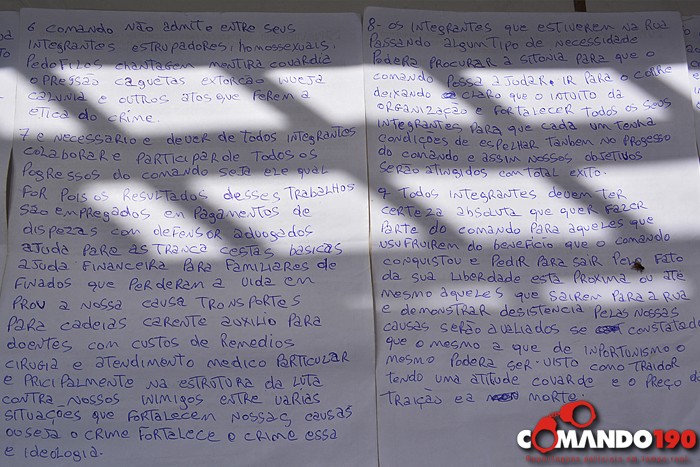 6 COMANDO NÃO ADMITO ENTRE SEUS
INTEGRANTES ESTRUPADORES, HOMOSSEXUAIS.
PEDOFILOS CHANTAGEM MENTIRA COVARDIA
OPRESSÃO CAGUETAS EXTORÇÃO INVEJA
CALUNIA E OUTROS ATOS QUE FEREM A
ETICA DO CRIME.
7 E NECESSARIO E DEVER DE TODOS INTEGRANTES
COLABORAR E PARTICIPAR DE TODOS OS
POGRESSOS DO COMANDO SEJA ELE QUAL
FOR POIS OS RESULTADOS DESSES TRABALHOS
SÃO EMPREGADOS EM PAGAMENTOS DE
DISPEZAS COM DEFENSOR ADVOGADOS
AJUDA PARE AS TRANCA CESTAS BASICAS
AJUDA FINANCEIRA PARA FAMILIARES DE
FINADOS QUE PERDERAM A VIDA EM
PROU A NOSSA CAUSA TRANSPORTES
PARA CADEIAS CARENTE AUXILIO PARA
DOENTES COM CUSTOS DE REMEDIOS
CIRUGIA E ATENDIMENTO MEDICO PARTICULAR
E PRICIPALMENTE NA ESTRUTURA DA LUTA
CONTRA NOSSOS INIMIGOS ENTRE VARIAS
SITUAÇÕES QUE FORTALECEM NOSSAS CAUSAS
OU SEJA O CRIME FORTALECE O CRIME ESSA
E IDEOLOGIA.
8- OS INTEGRANTES QUE ESTIVEREM NA RUA
PASSANDO ALGUM TIPO DE NECESSIDADE
PODERA PROCURAR A SITONIA PARA QUE O
COMANDO POSSA AJUDAR. IR PARA O CORRE
DEIXANDO CLARO QUE O INTUITO DA
ORGANIZAÇÃO E FORTALECER TODOS OS SEUS
INTEGRANTES PARA QUE CADA UM TENHA
CONDIÇÕES DE ESPOLHAR TANBEM NO PROGESSO
DO COMANDO E ASSIM NOSSOS OBJETIVOS
SERÃO ATINGIDOS COM TOTAL EXITO.
9 TODOS INTEGRANTES DEVEM TER
CERTEZA ABSOLUTA QUE QUER FAZER
PARTE DO COMANDO PARA AQUELES QUE
USUFRUIREM DO BENEFICIO QUE O COMANDO
CONQUISTOU E PEDIR PARA SAIR PELO FATO
DA SUA LIBERDADE ESTA PROXIMA OU ATÉ
MESMO AQUELES QUE SAIREM PARA A RUA
E DEMONSTRAR DESISTENCIA PELAS NOSSAS
CAUSAS SERÃO AVALIADOS SE CONSTATADO
QUE O MESMO A QUE DE INPORTUNISMO O
MESMO PODERA SER VISTO COMO TRAIDOR
TENDO UMA ATITUDE COVARDE E O PREÇO DA
TRAIÇÃO E A MORTE.
COMANDO190